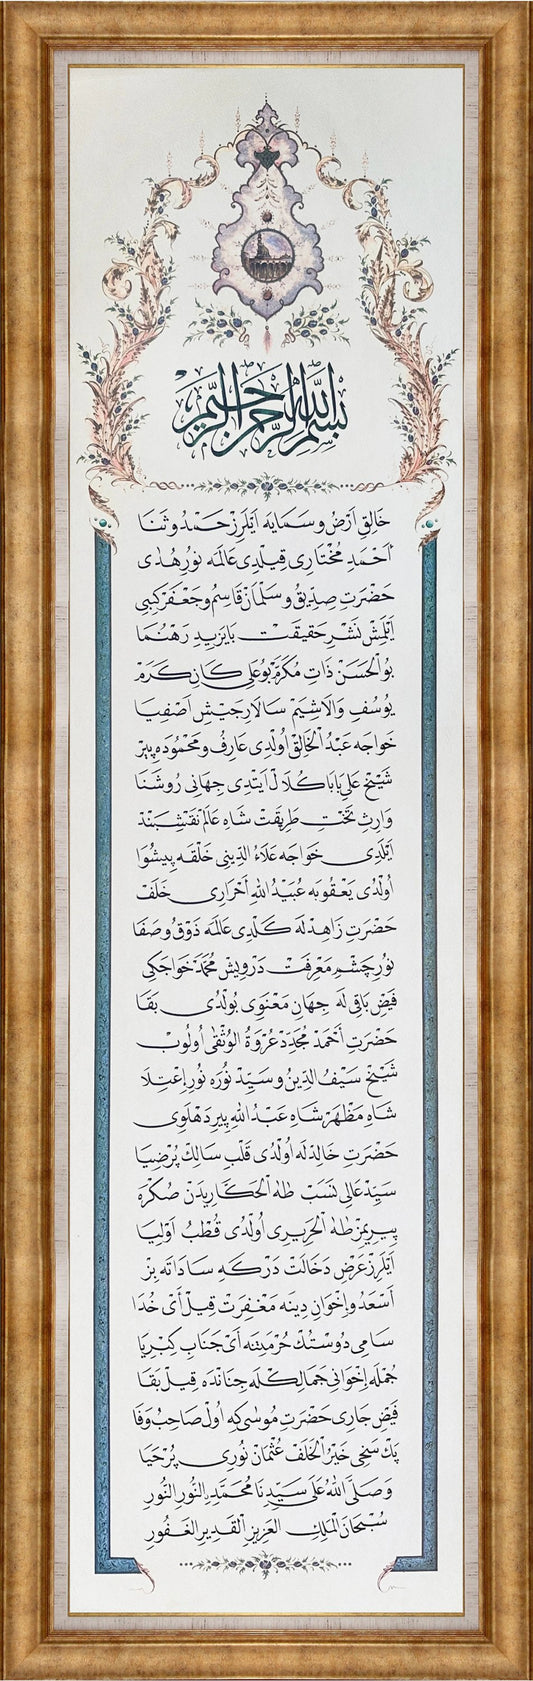 بِسْمِ اللّٰهِ الرَّحْمٰنِ الرَّحِيمِ
خَالِقِ اَرْضُ و سَمَايَه اَيْلَرِزْ حَمْدُ و ثَنَا
اَحْمَدِ مُخْتَارِى قِيلْدِى عَالَمَه نُورِ هُدٰى
حَضْرَتِ صِدّيقُ و سَلْمَانْ قَاسِمُ و جَعْفَرْ كِبِى
اَيْلَمِشْ نَشْرِ حَقِيقَتْ بَايَزِيدِ رَهْنُمَا
بُو الْحَسَنْ ذَاتِ مُكَرَّمْ بُو عَلِى كَانِ كَرَمْ
يُوسُفِ وَالَاشِيَمْ سَالَارِ جَيْشِ اَصْفِيَا
خَواجَه عَبْدُ الْخَالِقْ اُولْدِى عَارِفُ و مَحْمُودَه پِيرْ
شَيْخْ عَلِى بَابَا كُلَالْ اَيْتْدِى جِهَانِى رُوشَنَا
وَارِثِ تَخْتِ طَرِيقَتْ شَاهِ عَالَمْ نَقْشِبَنْدْ
اَيْلَدِى خَواجَه عَلَاءُ الدِّينِى خَلْقَه پِيشْوَا
اُولْدُى يَعْقُوبَه عُبَيْدُ اللهِ اَحْرَارِى خَلَفْ
حَضْرَتِ زَاهِدْلَه كَلْدِى عَالَمَه ذَوْقُ و صَفَا
نُورِ چَشْمِ مَعْرِفَتْ دَرْوِيشْ مُحَمَّدْ خَواجَكِى
فَيْضِ بَاقِى لَه جِهَانِ مَعْنَوِى بُولْدُى بَقَا
حَضْرَتِ اَحْمَدْ مُجَدِّدْ عُرْوَةُ الْوُثْقٰى اُولُوبْ
شَيْخْ سَيْفُ الدِّينُ و سَيِّدْ نُورَه نُورِ اِعْتِلَا
شَاهِ مَظْهَرْ شَاهِ عَبْدُ اللهِ پِيرِ دَهْلَوِى
حَضْرَتِ خَالِدْلَه اُولْدُى قَلْبِ سَالِكْ پُرْضِيَا
سَيِّدِ عَالِى نَسَبْ طٰهَ الْحَكَّارِيدَنْ صُكْرَه
پِيرِيمِزْ طٰهَ الْحَرِيرِى اُولْدُى قُطْبُ اَوْلِيَا
اَيْلَرِزْ عَرْضِ دَخَالَتْ دَرْكَهِ سَادَاتَه بِزْ
اَسْعَدُ و اِخْوَانِ دِينَه مَغْفِرَتْ قِيلْ اَىْ خُدَا
سَامِى دُوسْتُكْ حُرْمَتِنَه اَىْ جَنَابِ كِبْرِيَا
جُمْلَه اِخْوَانِى جَمَالِكْلَه جِنَانْدَه قِيلْ بَقَا
فَيْضِ جَارِى حَضْرَتِ مُوسٰى كِه اُولْ صَاحِبْ وَفَا
پَكْ سَخِى خَيْرُ الْخَلَفْ عُثْمَانْ نُورِى پُرْحَيَا
وَصَلَّى اللهُ عَلٰى سَيِّدِنَا مُحَمَّدٍ النُّورِ النُّورِ
سُبْحَانَ الْمَلِكِ الْعَزِيزِ الْقَدِيرِ الْغَفُورِ